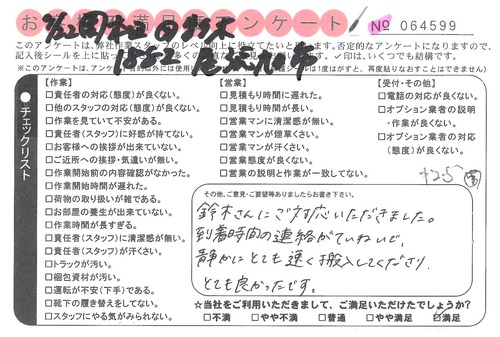 お 満 アンケート
№ 064599
このアンケートは、弊社作業スタッフのレベル向上に役立てたいと
ます。否定的なアンケートになりますので、
記入後シールを上に貼って
✓印は、いくつでも結構です。
※このアンケートは、アンケート
目的以外には使用
シールは1度はがすと、再度貼りなおすことはできません)
●チェックリスト
【作業】
□責任者の対応(態度)が良くない。
□他のスタッフの対応(態度)が良くない。
□作業を見ていて不安がある。
□責任者(スタッフ)に好感が持てない。
□お客様への挨拶が出来ていない。
□ご近所への挨拶・気遣いが無い。
□作業開始前の内容確認がなかった。
□作業開始時間が遅れた。
□荷物の取り扱いが雑である。
□お部屋の養生が出来ていない。
□作業時間が長すぎる。
□責任者(スタッフ)に清潔感が無い。
□責任者(スタッフ)が汗くさい。
□トラックが汚い。
□梱包資材が汚い。
□運転が不安(下手)である。
□靴下の履き替えをしてない。
□スタッフにやる気がみられない。
【営業】
□見積もり時間に遅れた。
□見積もり時間が長い。
□営業マンに清潔感が無い。
□営業マンが煙草くさい。
□営業マンが汗くさい。
□営業態度が良くない。
□営業の説明と作業が一致してない。
【受付・その他】
□電話の対応が良くない。
□オプション業者の説明
・作業が良くない。
□オプション業者の対応
(態度)が良くない。
その他、ご意見・ご要望等ありましたらお書き下さい。
鈴木さんにご対応いただきました。
到着時間の連絡がていねいで、
静かにとても速く搬入してくださり、
とても良かったです。
☆当社をご利用いただきまして、ご満足いただけたでしょうか?
□不満 □やや不満 □普通 □やや満足 □満足